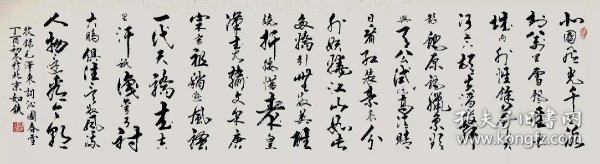 北國風光千里冰
封萬里雪飄望長
城內外惟餘莽莽大
河上下頓失滔滔山舞
銀蛇原馳蠟象欲
與天公試比高須晴
日看紅裝素裹分
外妖嬈江山如此
多嬌引無數英雄
競折腰惜秦皇
漢武略輸文采唐
宗宋祖稍遜風騷
一代天驕成吉思
汗只識彎弓射
大雕俱往矣數風流
人物還看今朝
敬錄毛澤東詞沁園春雪
丁酉初冬於北京如